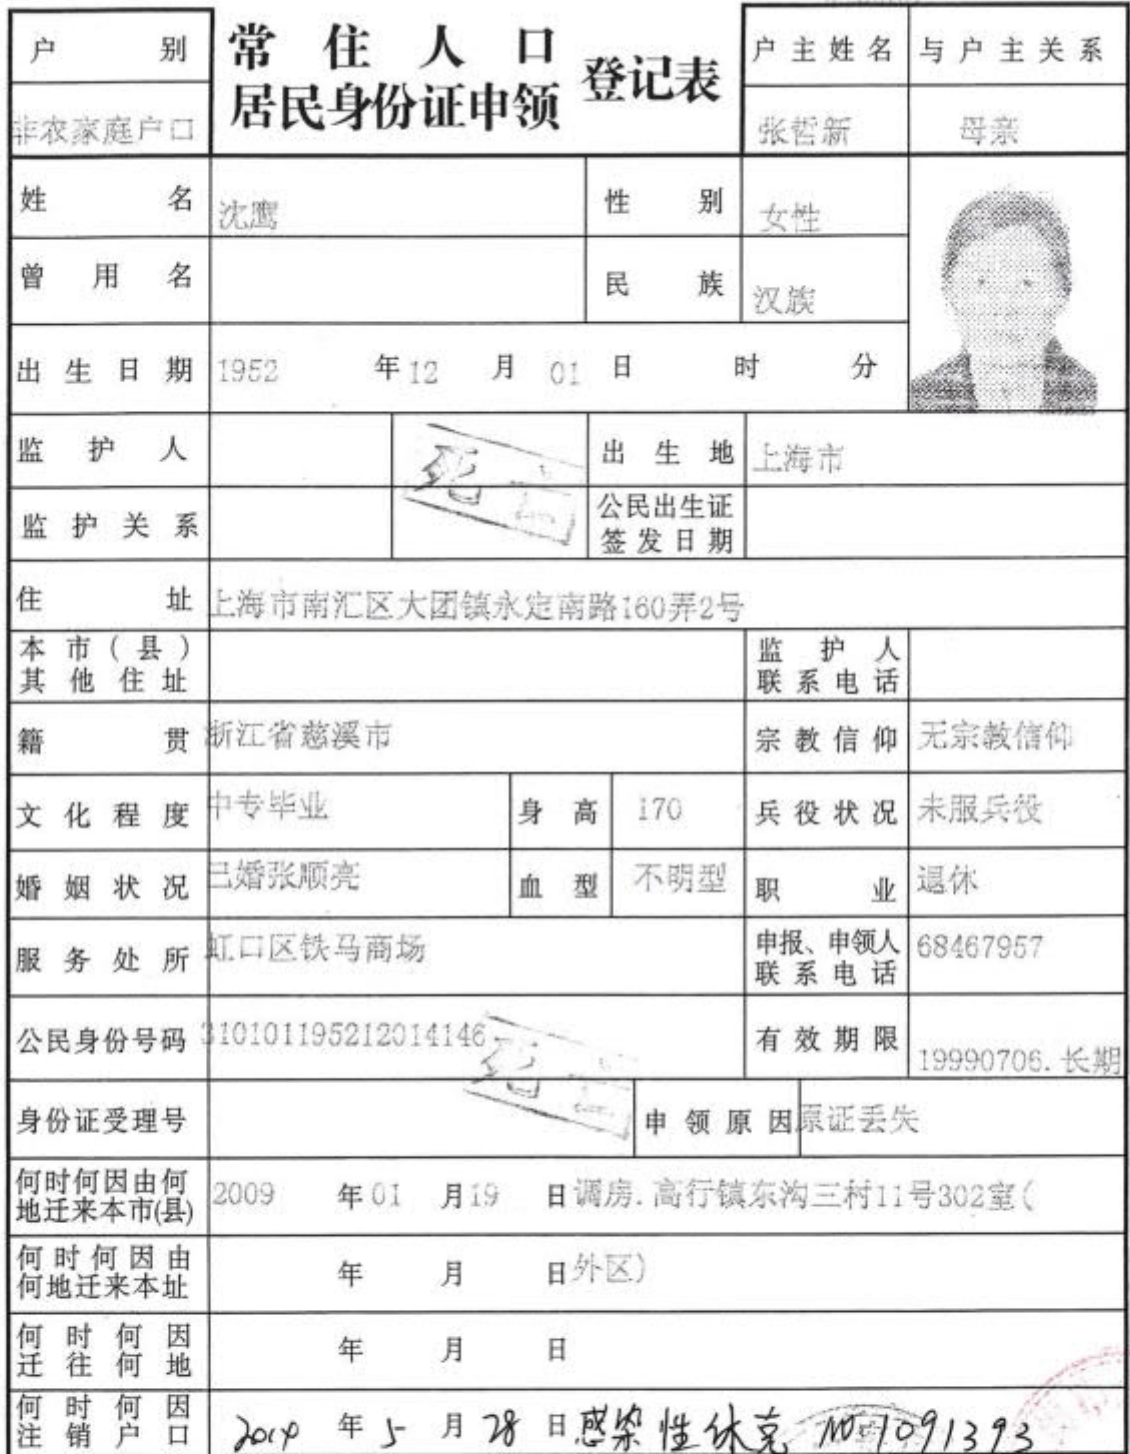 户 别
常 住 人 口
居民身份证申领
登记表
户主姓名 与户主关系
非农家庭户口 张哲新 母亲
姓 名 沈鹰 性 别 女性
曾 用 名 民 族 汉族
出生日期 1952 年 12 月 01 日 时 分
监 护 人 死亡 出 生 地 上海市
监护关系 公民出生证
签发日期
住 址 上海市南汇区大团镇永定南路160弄2号
本市(县)
其他住址 监护人
联系电话
籍 贯 浙江省慈溪市 宗教信仰 无宗教信仰
文化程度 中专毕业 身高 170 兵役状况 未服兵役
婚姻状况 已婚张顺亮 血型 不明型 职 业 退休
服务处所 虹口区铁马商场 申报、申领人
联系电话 68467957
公民身份号码 310101195212014146 有效期限 19990706.长期
死亡
身份证受理号 申领原因 原证丢失
何时何因由何
地迁来本市(县) 2009 年 01 月 19 日 调房.高行镇东沟三村11号302室(
何时何因由
何地迁来本址 年 月 日 外区)
何时何因
迁往何地 年 月 日
何时何因
注销户口 2014 年 5 月 28 日 感染性休克 No 1091393